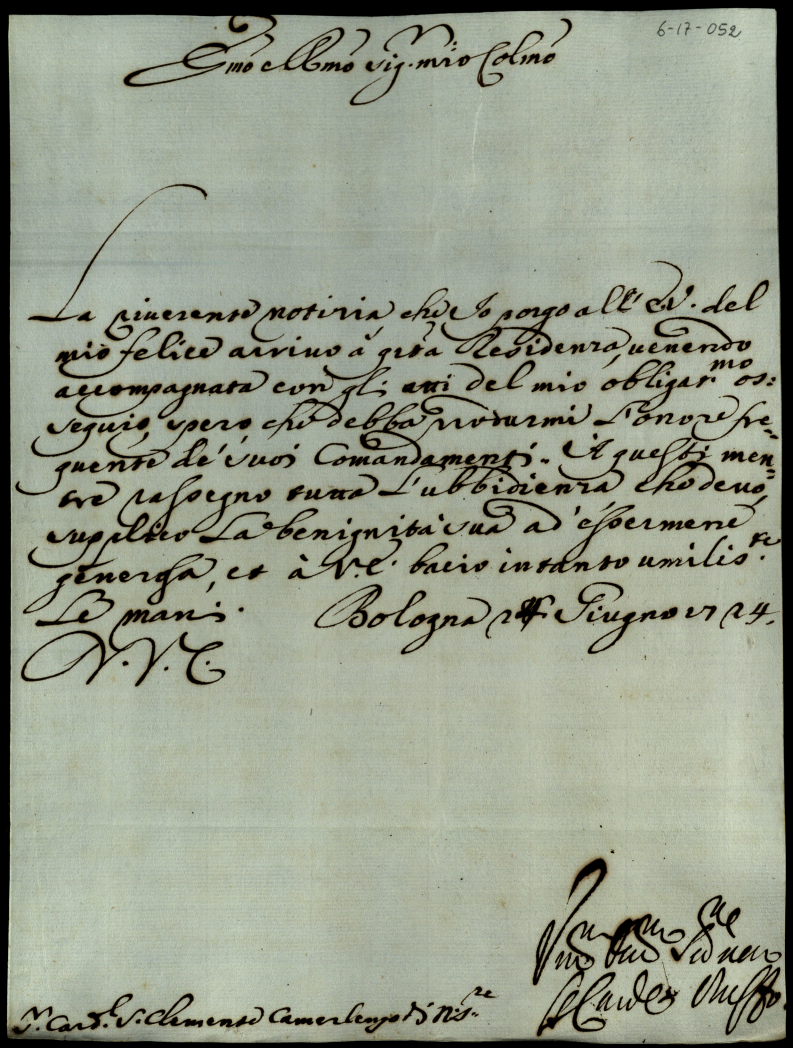 6-17-052
Em̃o e Rm̃o Sig.r mio Colm̃o
La riverente notizia, che Io porgo all'E.V. del
mio felice arrivo à q̃sta Residenza, venendo
accompagnata con gli atti del mio obligat.mo os:
sequio, spero che debba produrmi L'onore fre-
quente de' suoi Comandamenti. A questi men-
tre rassegno tutta L'ubbidienza che devo,
supplico La benignità sua ad essermene
generosa, et à V.E. bacio intanto umiliss.te
Le mani. Bologna Giugno 1724.
V. E.
Ser
Il Card. Ruffo
S.r Card.l S. Clemente Camerlengo di N. S.re